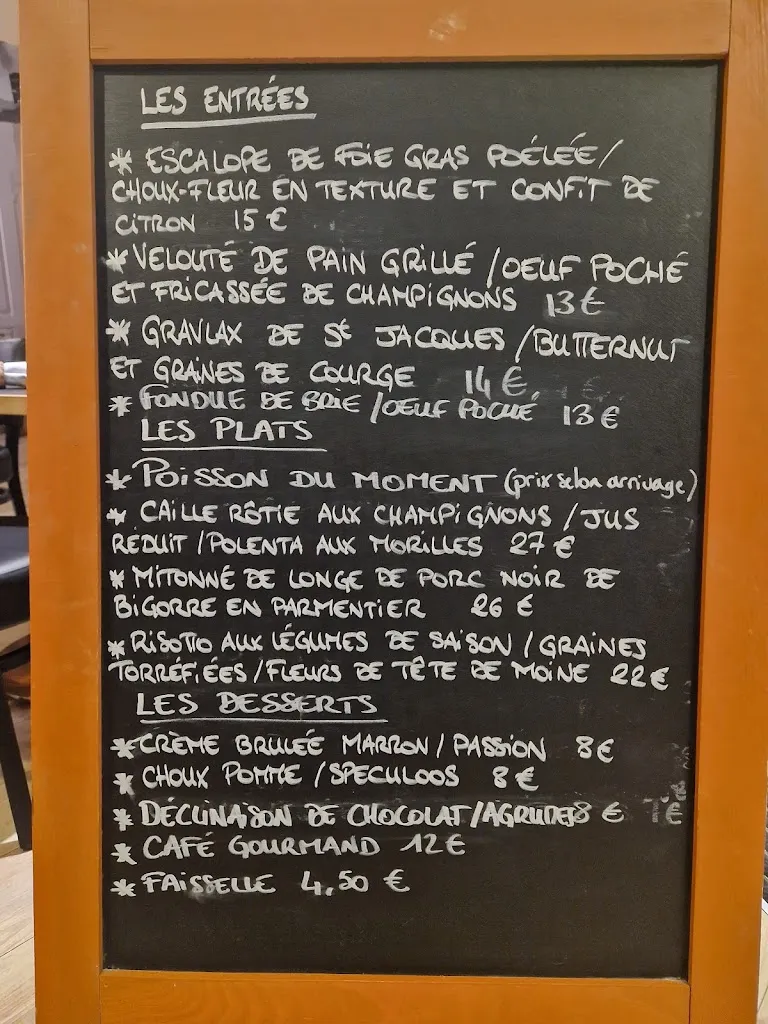 LES ENTRÉES
* ESCALOPE DE FOIE GRAS POÊLÉE/
CHOUX-FLEUR EN TEXTURE ET CONFIT DE
CITRON 15 €
* VELOUTÉ DE PAIN GRILLÉ /OEUF POCHÉ
ET FRICASSÉE DE CHAMPIGNONS 13€
* GRAVLAX DE St JACQUES /BUTTERNUT
ET GRAINES DE COURGE 14 €
* FONDUE DE BRIE /OEUF POCHÉ 13 €
LES PLATS
* POISSON DU MOMENT (prix selon arrivage)
* CAILLE RÔTIE AUX CHAMPIGNONS / JUS
RÉDUIT /POLENTA AUX MORILLES 27 €
* MITONNÉ DE LONGE DE PORC NOIR DE
BIGORRE EN PARMENTIER 26 €
* RISOTTO AUX LÉGUMES DE SAISON / GRAINES
TORRÉFIÉES /FLEURS DE TÊTE DE MOINE 22€
LES DESSERTS
* CRÈME BRULÉE MARRON / PASSION 8€
* CHOUX POMME /SPECULOOS 8€
* DÉCLINAISON DE CHOCOLAT/AGRUMES 8 €
* CAFÉ GOURMAND 12€
* FAISSELLE 4,50 €